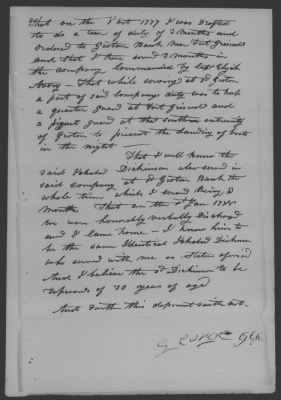 that on the 1st Oct 1777 I was drafted
to do a tour of duty of 3 months and
ordered to Groton Bank near Fort Griswold
and that I then served 3 months in
the company commanded by Capt Elijah
Avery - That while serving at sd Groton
a part of said company duty was to keep
a quarter guard at Fort Griswold and
a piquet guard at the southern extremity
of Groton to prevent the landing of boats
in the night
That I well know the
said Ichabod Dickinson who served in
said company at sd Groton Bank the
whole time which I served being 3
months, That on the 1st Jan 1778
we were honorably verbally discharged
and I came home - I know him to
be the same Identical Ichabod Dickinson
who served with me as stated aforesaid
And I believe the sd Dickinson to be
upwards of 70 years of age
And further this deponent saith not.
George